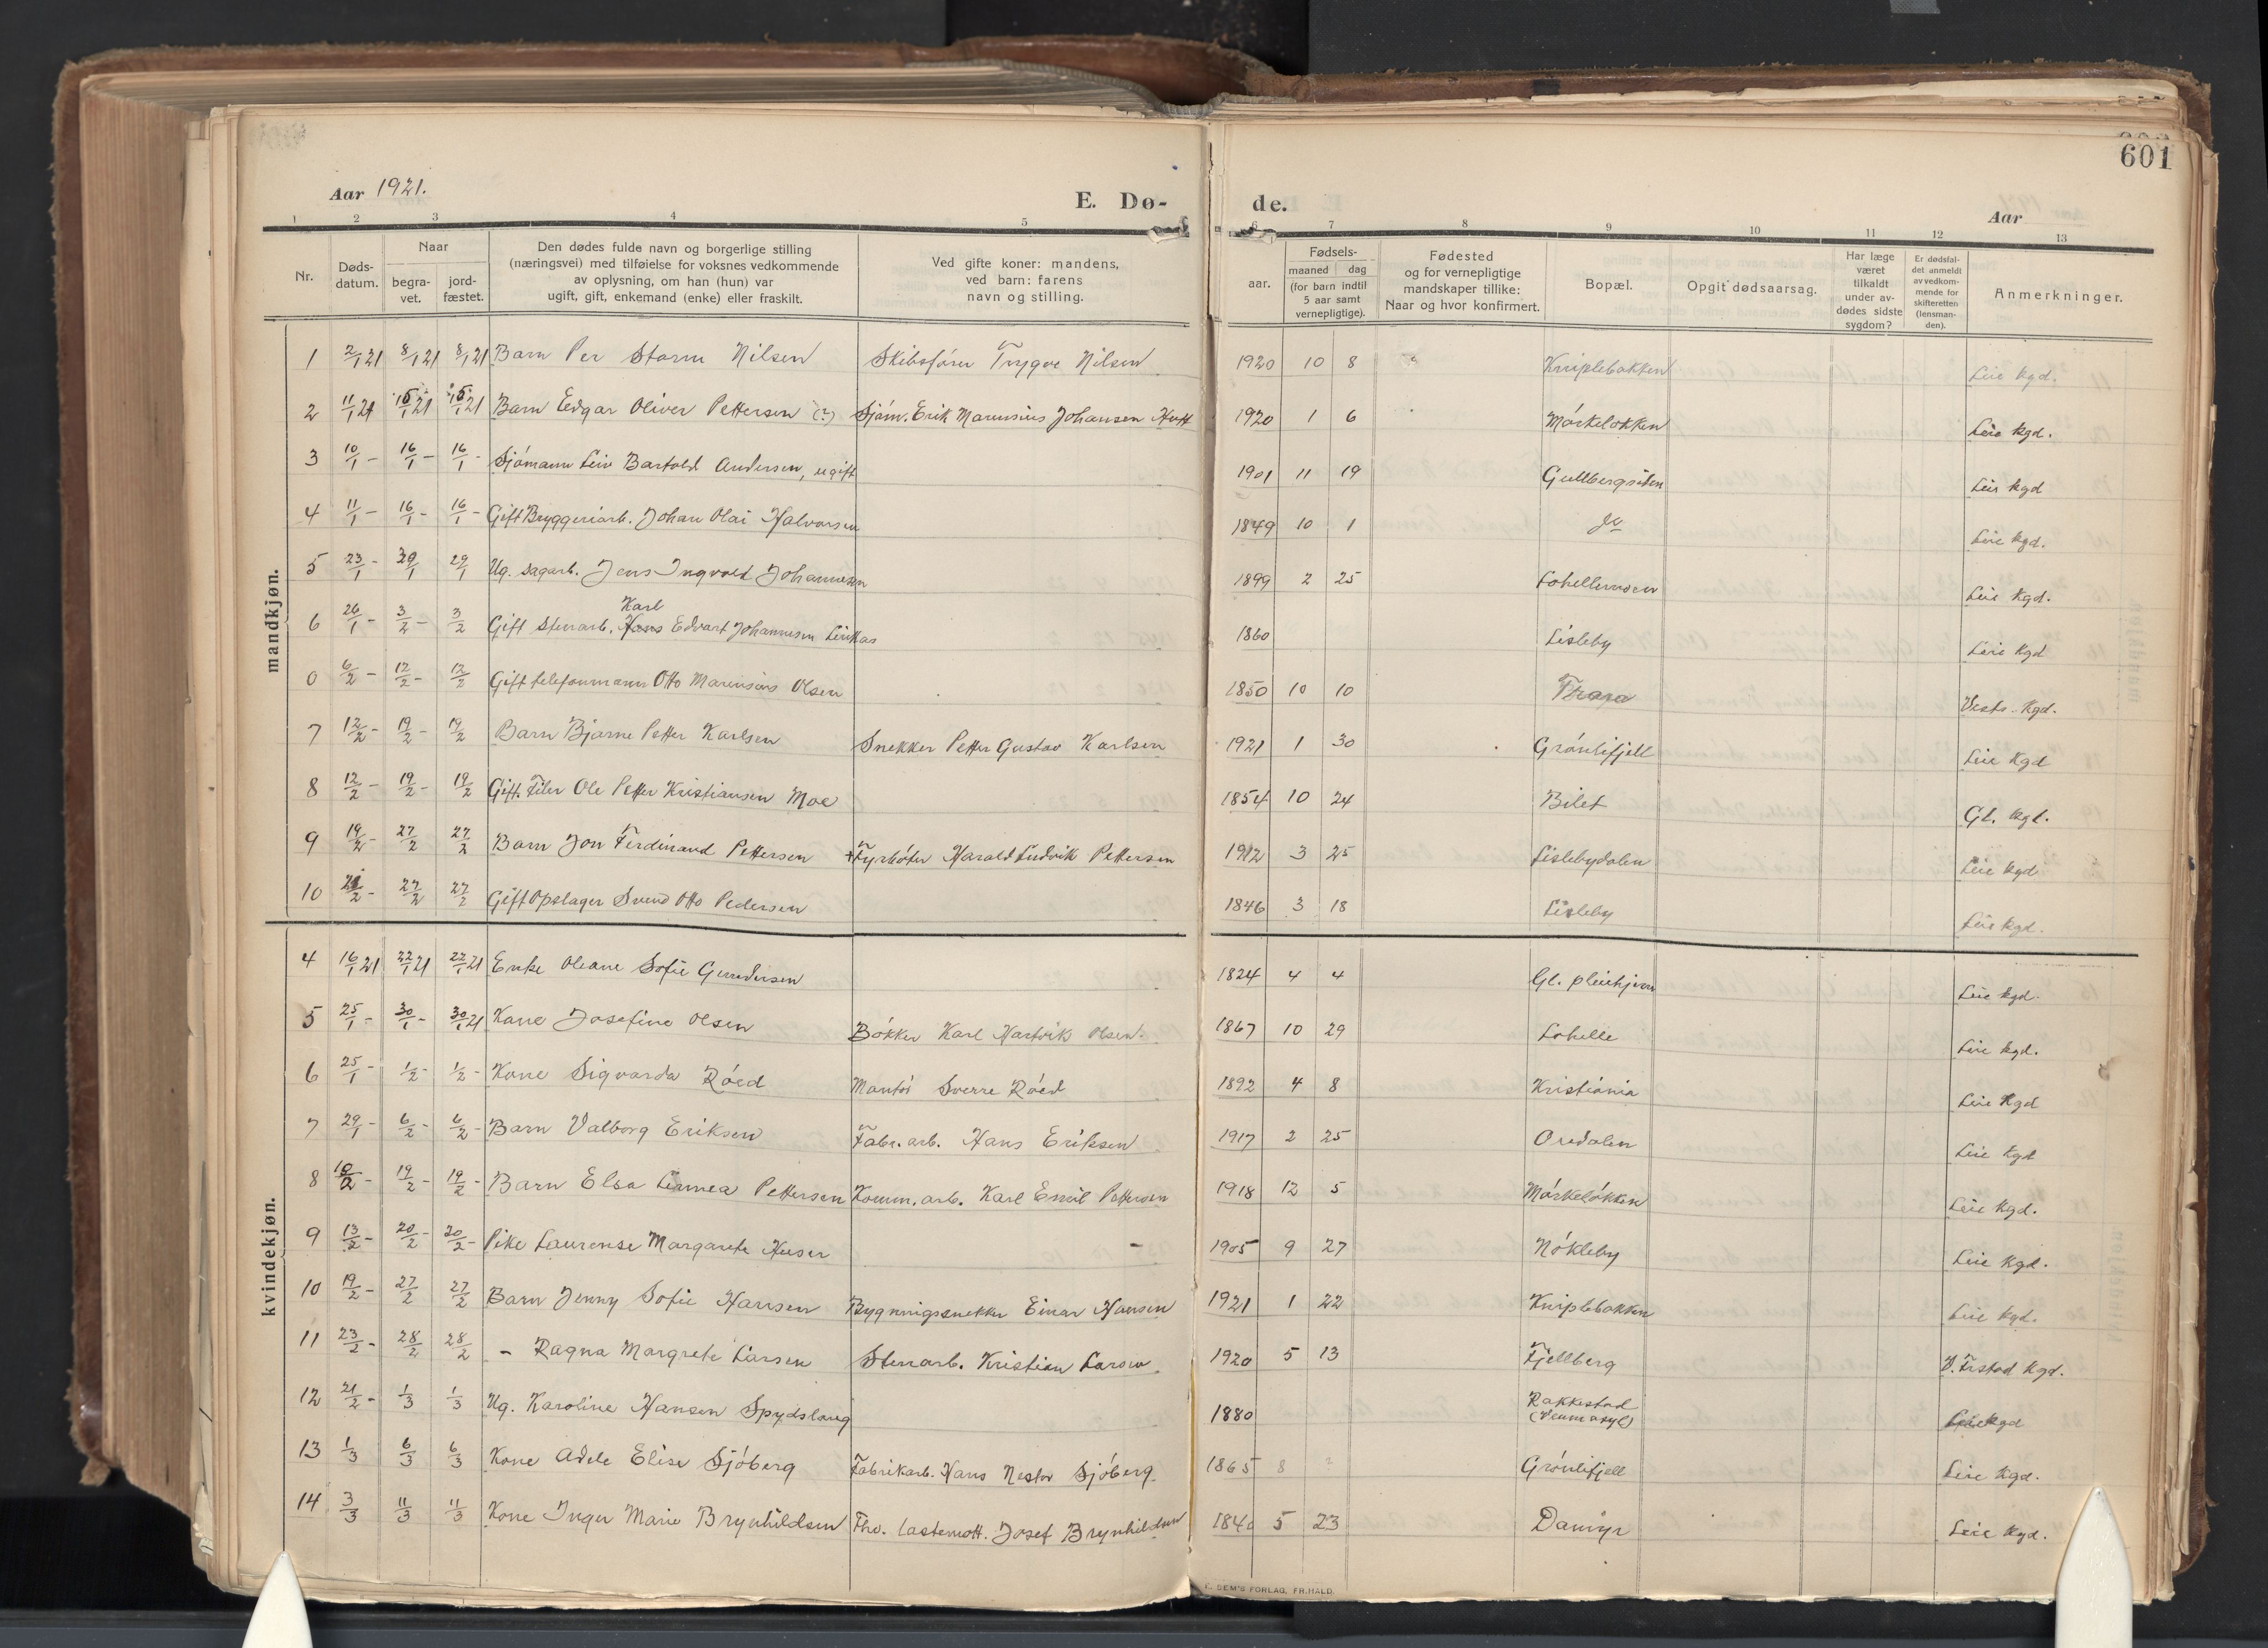 601
Aar 1921. E. Dø- de. Aar
1 2 3 4 5 6 7 8 9 10 11 12 13
Nr. Døds-datum. Naar begra-vet. jord-fæstet. Den dødes fulde navn og borgerlige stilling (næringsvei) med tilføielse for voksnes vedkommende av oplysning, om han (hun) var ugift, gift, enkemand (enke) eller fraskilt. Ved gifte koner: mandens, ved barn: farens navn og stilling. aar. Fødsels- maaned dag (for barn indtil 5 aar samt vernepligtige). Fødested og for vernepligtige mandskaper tillike: Naar og hvor konfirmert. Bopæl. Opgit dødsaarsag. Har læge været tilkaldt under av-dødes sidste sygdom? Er dødsfal-det anmeldt av vedkom-mende for skifteretten (lensman-den). Anmerkninger.
mandkjøn.
1 2/1 21 8/1 21 8/1 21 Barn Per Storm Nilsen Skibsfører Trygve Nilsen 1920 10 8 Kniplebakken Leie kgd.
2 11/1 21 15/1 21 15/1 21 Barn Edgar Oliver Pettersen (?) Sjøm. Erik Marensius Johansen 1920 1 6 Mørkeløkken Leie kgd.
3 10/1 - 16/1 - 16/1 - Sjømann Leiv Bartold Andersen, ugift 1901 11 19 Gullbergsiden Leie kgd
4 11/1 - 16/1 - 16/1 - Gift Bryggeriarb. Johan Olai Halvorsen 1849 10 1 Leie kgd.
5 23/1 - 29/1 29/1 Ug. sagarb. Jens Ingvald Johannesen 1899 2 25 Lohellemoen Leie kgd.
6 26/1 - 3/2 - 3/2 Gift Stenarb. Hans Karl Edvart Johannesen 1860 Lisleby Leie kgd
0 6/2 - 12/2 - 12/2 Gift telefonmann Otto Marensius Olsen 1850 10 10 Trara Vestr. kgd.
7 12/2 - 19/2 - 19/2 Barn Bjarne Petter Karlsen Snekker Petter Gustav Karlsen 1921 1 30 Grønlifjell Leie kgd
8 12/2 - 19/2 - 19/2 Gift. Filer Ole Petter Kristiansen Moe 1854 10 24 Bilet Gl. kgd.
9 19/2 - 27/2 27/2 Barn Jon Ferdinand Pettersen Fyrbøter Harald Ludvik Pettersen 1912 3 25 Lislebydalen Leie kgd
10 21/2 - 27/2 27/2 Gift Opslager Svend Otto Pedersen 1846 3 18 Lisleby Leie kgd.
kvindekjøn.
4 16/1 21 22/1 21 22/1 21 Enke Oleane Sofie Gundersen 1824 4 4 Gl. pleiehjem Leie kgd.
5 25/1 - 30/1 - 30/1 21 Kone Josefine Olsen Bøkker Karl Hartvik Olsen. 1867 10 29 Lohelle Leie kgd.
6 25/1 - 1/2 - 1/2 - Kone Sigvarda Røed Montør Sverre Røed 1892 4 8 Kristiania Leie kgd
7 29/1 - 6/2 - 6/2 - Barn Valborg Eriksen Fabr. arb. Hans Eriksen 1917 2 25 Oredalen Leie kgd
8 10/2 - 19/2 - 19/2 - Barn Elsa Linnea Pettersen Komm. arb. Karl Emil Pettersen 1918 12 5 Mørkeløkken Leie kgd.
9 13/2 - 20/2 - 20/2 - Pike Laurense Margarete Huser - 1905 9 27 Nøkleby Leie kgd.
10 19/2 - 27/2 27/2 Barn Jenny Sofie Hansen Bygningssnekker Einar Hansen 1921 1 22 Kniplebakken Leie kgd.
11 23/2 - 28/2 28/2 - Ragna Margrete Larsen Stenarb. Kristian Larsen. 1920 5 13 Fjellberg V. Frstad kgd.
12 21/2 - 1/3 1/3 Ug. Karoline Hansen Spydslaug 1880 Rakkestad (Venm asyl) Leie kgd
13 1/3 6/3 6/3 Kone Adele Elise Sjøberg Fabrikarb. Hans Nestor Sjøberg. 1865 8 ? Grønlifjell Leie kgd.
14 3/3 11/3 11/3 Kone Inger Marie Brynhildsen Fhv. Lastemott. Josef Brynhildsen 1840 5 23 Damyr Leie kgd.
SEM'S FORLAG, FR.HALD.